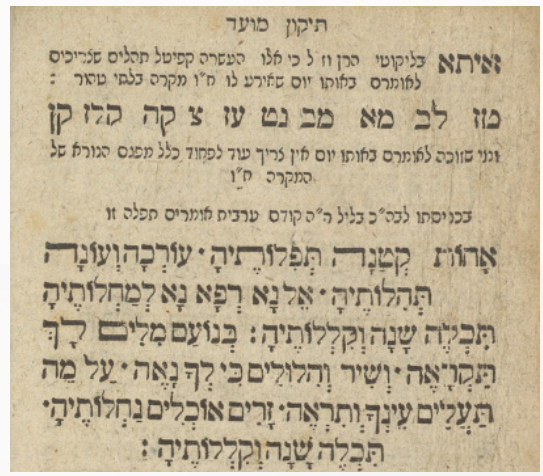 תיקון מועד
איתא בליקוטי הרן ז״ל כי אלו העשרה קפיטל תהלים שצריכים
לאומרם באותו יום שאירע לו ח״ו מקרה בלתי טהור :
טז לב מא מב נט עז צ קה קלז קן
ומי שזוכה לאומרם באותו יום אין צריך עוד לפחוד כלל מפגם הנורא של
המקרה ח״ו
בכניסתו לבה״כ בליל ר״ה קודם ערבית אומרים תפלה זו
אָחוֹת קְטַנָה תְּפִלוֹתֶיהָ · עוֹרְכָה וְעוֹנָה
תְּהִלוֹתֶיהָ · אֵל נָא רְפָא נָא לְמַחְלוֹתֶיהָ
תִּכְלֶה שָׁנָה וְקִלְלוֹתֶיהָ : בְּנוֹעַם מִלִּים לָךְ
תִּקְרָאֶה · וְשִׁיר וְהִלוּלִים כִּי לְךָ נָאֶה · עַל מֶה
תַּעֲלִים עֵינְךָ וְתִרְאֶה · זָרִים אוֹכְלִים נַחְלוֹתֶיהָ ·
תִּכְלֶה שָׁנָה וְקִלְלוֹתֶיהָ :